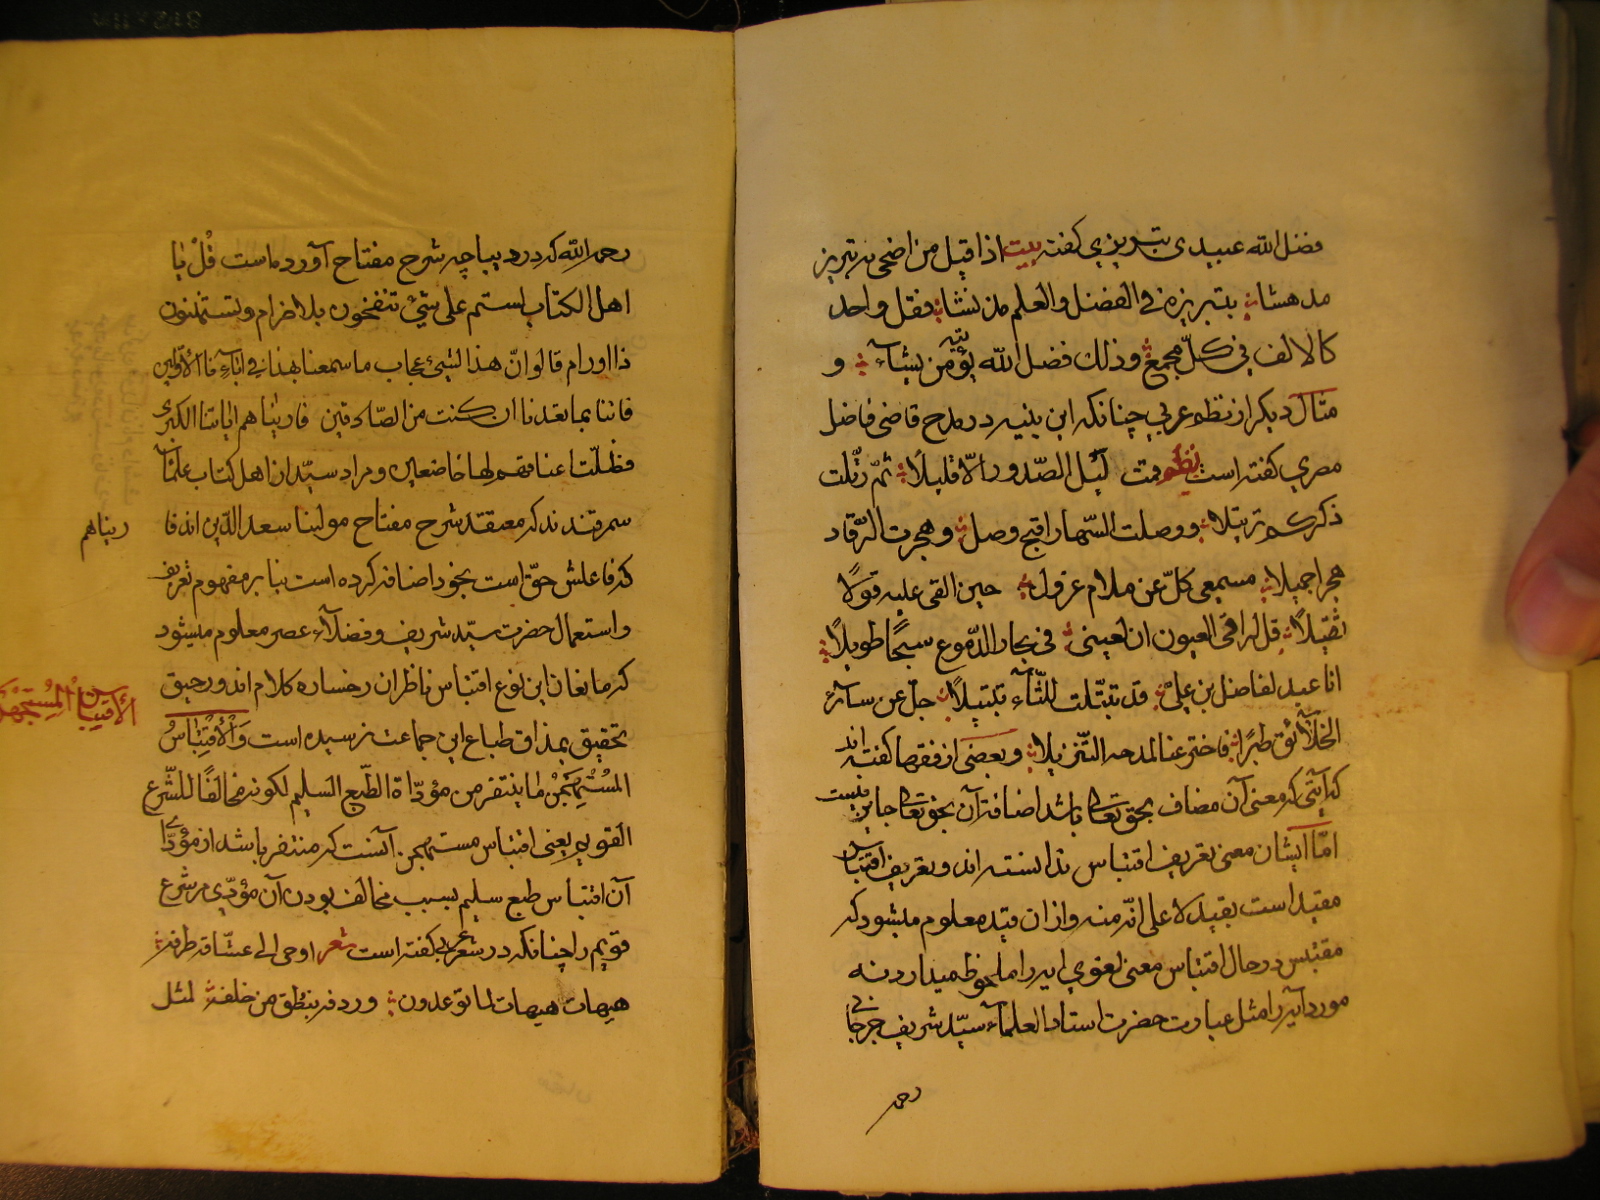 فضل الله عبیدی تبریزی کفته بیت اذا قیل من اضحی به تبریز
مدهشا بتبریزه فی الفضل والعلم مذ نشا فقل واحد
کالالف فی کلّ مجمع وذلک فضل الله یؤتیه من یشآء و
مثال دیکر از نظم عربی چنانکه ابن بنیه در مدح قاضی فاضل
مصری کفته است نظم قمت لیل الصّدود الاّ قلیلاً ثمّ رتّلت
ذکرکم ترتیلا ووصلت السّهاد اقبح وصل وهجرت الرّقاد
هجرا جمیلا مسمعی کلّ عن ملام عذول حین القی علیه قولاً
ثقیلاً قل لراقی العیون ان لعینی فی بحار الدّموع سبحًا طویلاً
انا عبد لفاضل بن علی قد تبتّلت للثّنآء تبتیلاً جلّ عن سآئر
الخلآئق طبرًا فاخترعنا لمدحه التّنزیلا وبعضی از فقها کفته اند
که آیتی که معنی آن مضاف بحق تعالی باشد اضافة آن بحق تعالی جایز نیست
امّا ایشان معنی تعریف اقتباس ندانسته اند و تعریف اقتباس
مقید است بقید لا علی انّه منه و از ان قید معلوم میشود که
مقتبس در حال اقتباس معنی لغوی ایه را ملحوظ میدارد نه
مورد آیه را مثل عبارت حضرت استاد العلمآء سیّد شریف جرجانی
رحمه
رحمه الله که در دیباچه شرح مفتاح آورده است قُلْ یٰا
اهل الکتاب لستم علی شیْء تنفخون بلا ضرام وتستثمنون
ذا اورام قالوا انّ هذا لشیء عجاب ما سمعنا بهذا فی ابآءنا الاوّلین
فاتنا بما تعدنا ان کنت من الصّادقین فاریناهم ایاتنا الکبری
فظلّت اعناقهم لها خاضعین و مراد سیّد از اهل کتاب علمآء
سمرقندند که معتقد شرح مفتاح مولینا سعد الدّین اند فا
ریناهم
که فاعلش حقّ است بخود اضافه کرده است بنا بر مفهوم تعریف
و استعمال حضرت سیّد شریف و فضلآء عصر معلوم میشود
که مانعان این نوع اقتباس ناظران رخساره کلام اند و رحیق
الاقتباس المستهجن
تحقیق بمذاق طباع این جماعت نرسیده است وَالْأقْتِبٰاسُ
المُسْتَهْجَنْ ما ینتفر من مؤدّاة الطّبع السلیم لکونه مخالفًا للشّرع
القویم یعنی اقتباس مستهجن آنست که متنفر باشد از مؤدّای
آن اقتباس طبع سلیم بسبب مخالف بودن آن مؤدّی مر شرع
قویم را چنانکه در شعر عربی کفته است شعر اوحی الی عشّاقه طرفه
هیهات هیهات لما توعدون وردفه ینطق من خلفه لمثل